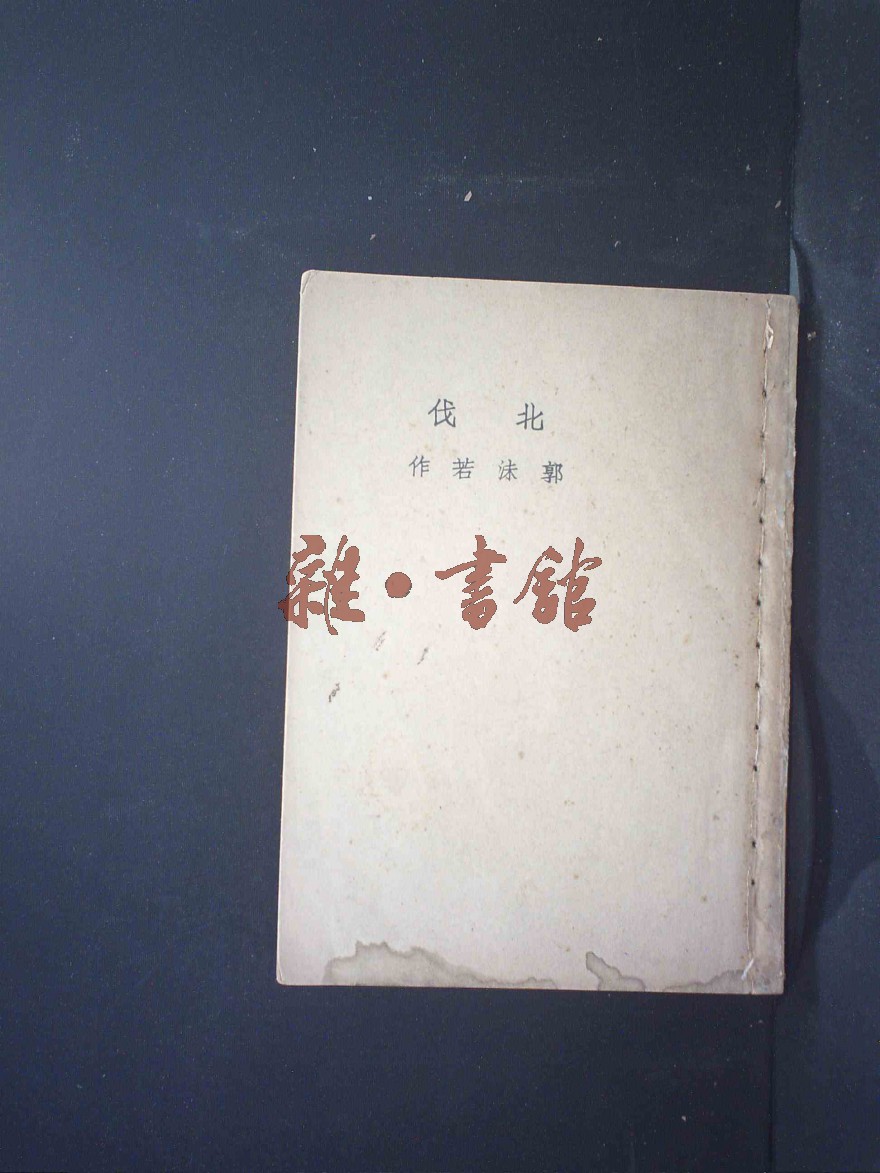 北伐
郭沫若作
雜·書館